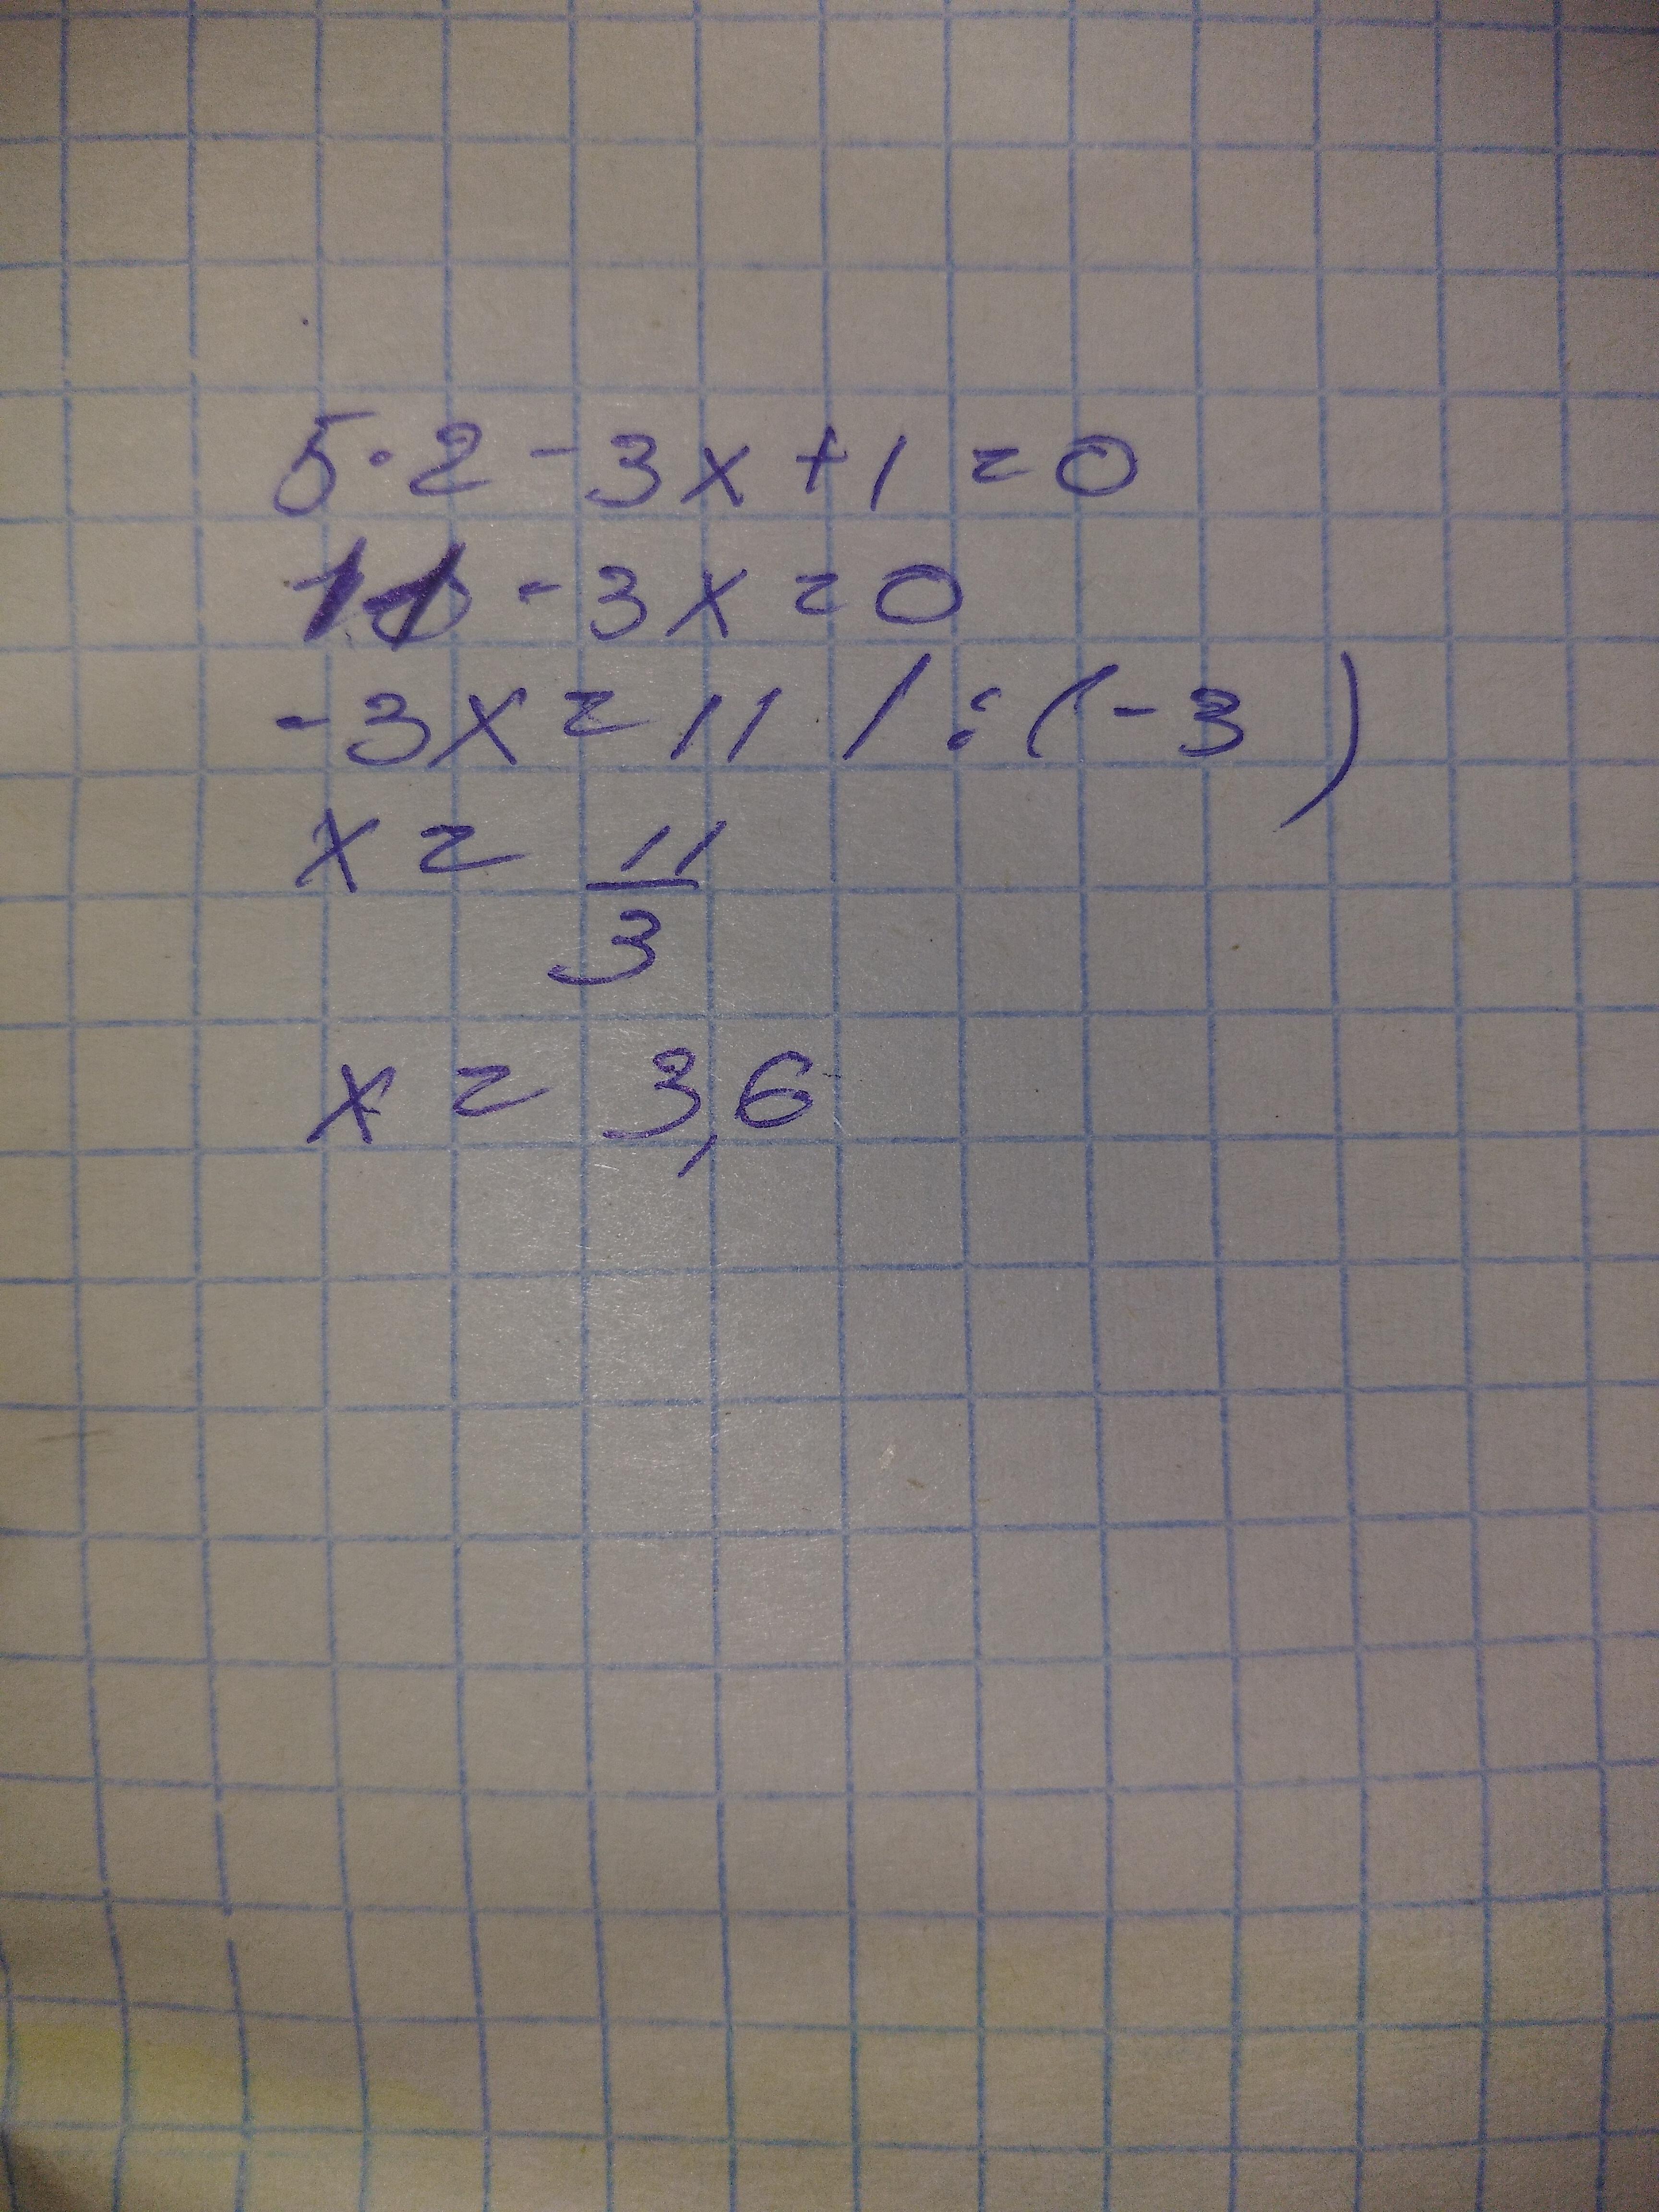 5·2-3x+1=0
11-3x=0
-3x=11 /:(-3)
x=11/3
x=3,6